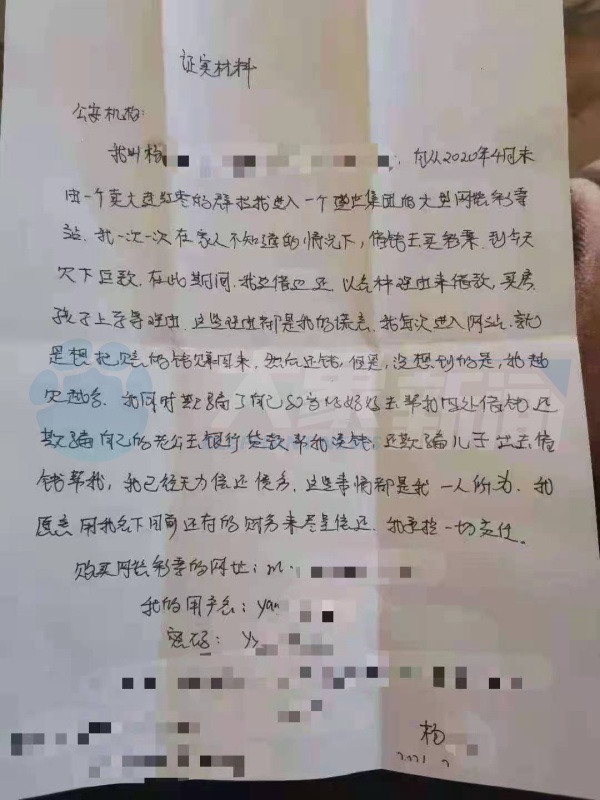 证实材料
公安机构:
我叫杨 自从2020年4月末
由一个卖大连红枣的群拉我进入一个 集团的大型网络彩票
站.我一次一次在家人不知道的情况下,借钱去买彩票.到今天
欠下巨款.在此期间.我边借边还.以各种理由来借款,买房
孩子上学等理由.这些理由都是我的谎言.我每次进入网站.就
是想把 的钱 回来,然后还钱,但是,没想到的是,我越
欠越多.我同时欺骗了自己80岁的 去帮我四处借钱.还
欺骗自己的老公去银行贷款帮我 钱,还欺骗儿子出去借
钱帮我,我已经无力偿还债务.这些事情都是我一人所为.我
愿意用我名下目前还存的财务来尽量偿还.我承担一切责任。
购买网络彩票的网址:m.
我的用户名:yan
密码: Yy
杨
2021.2